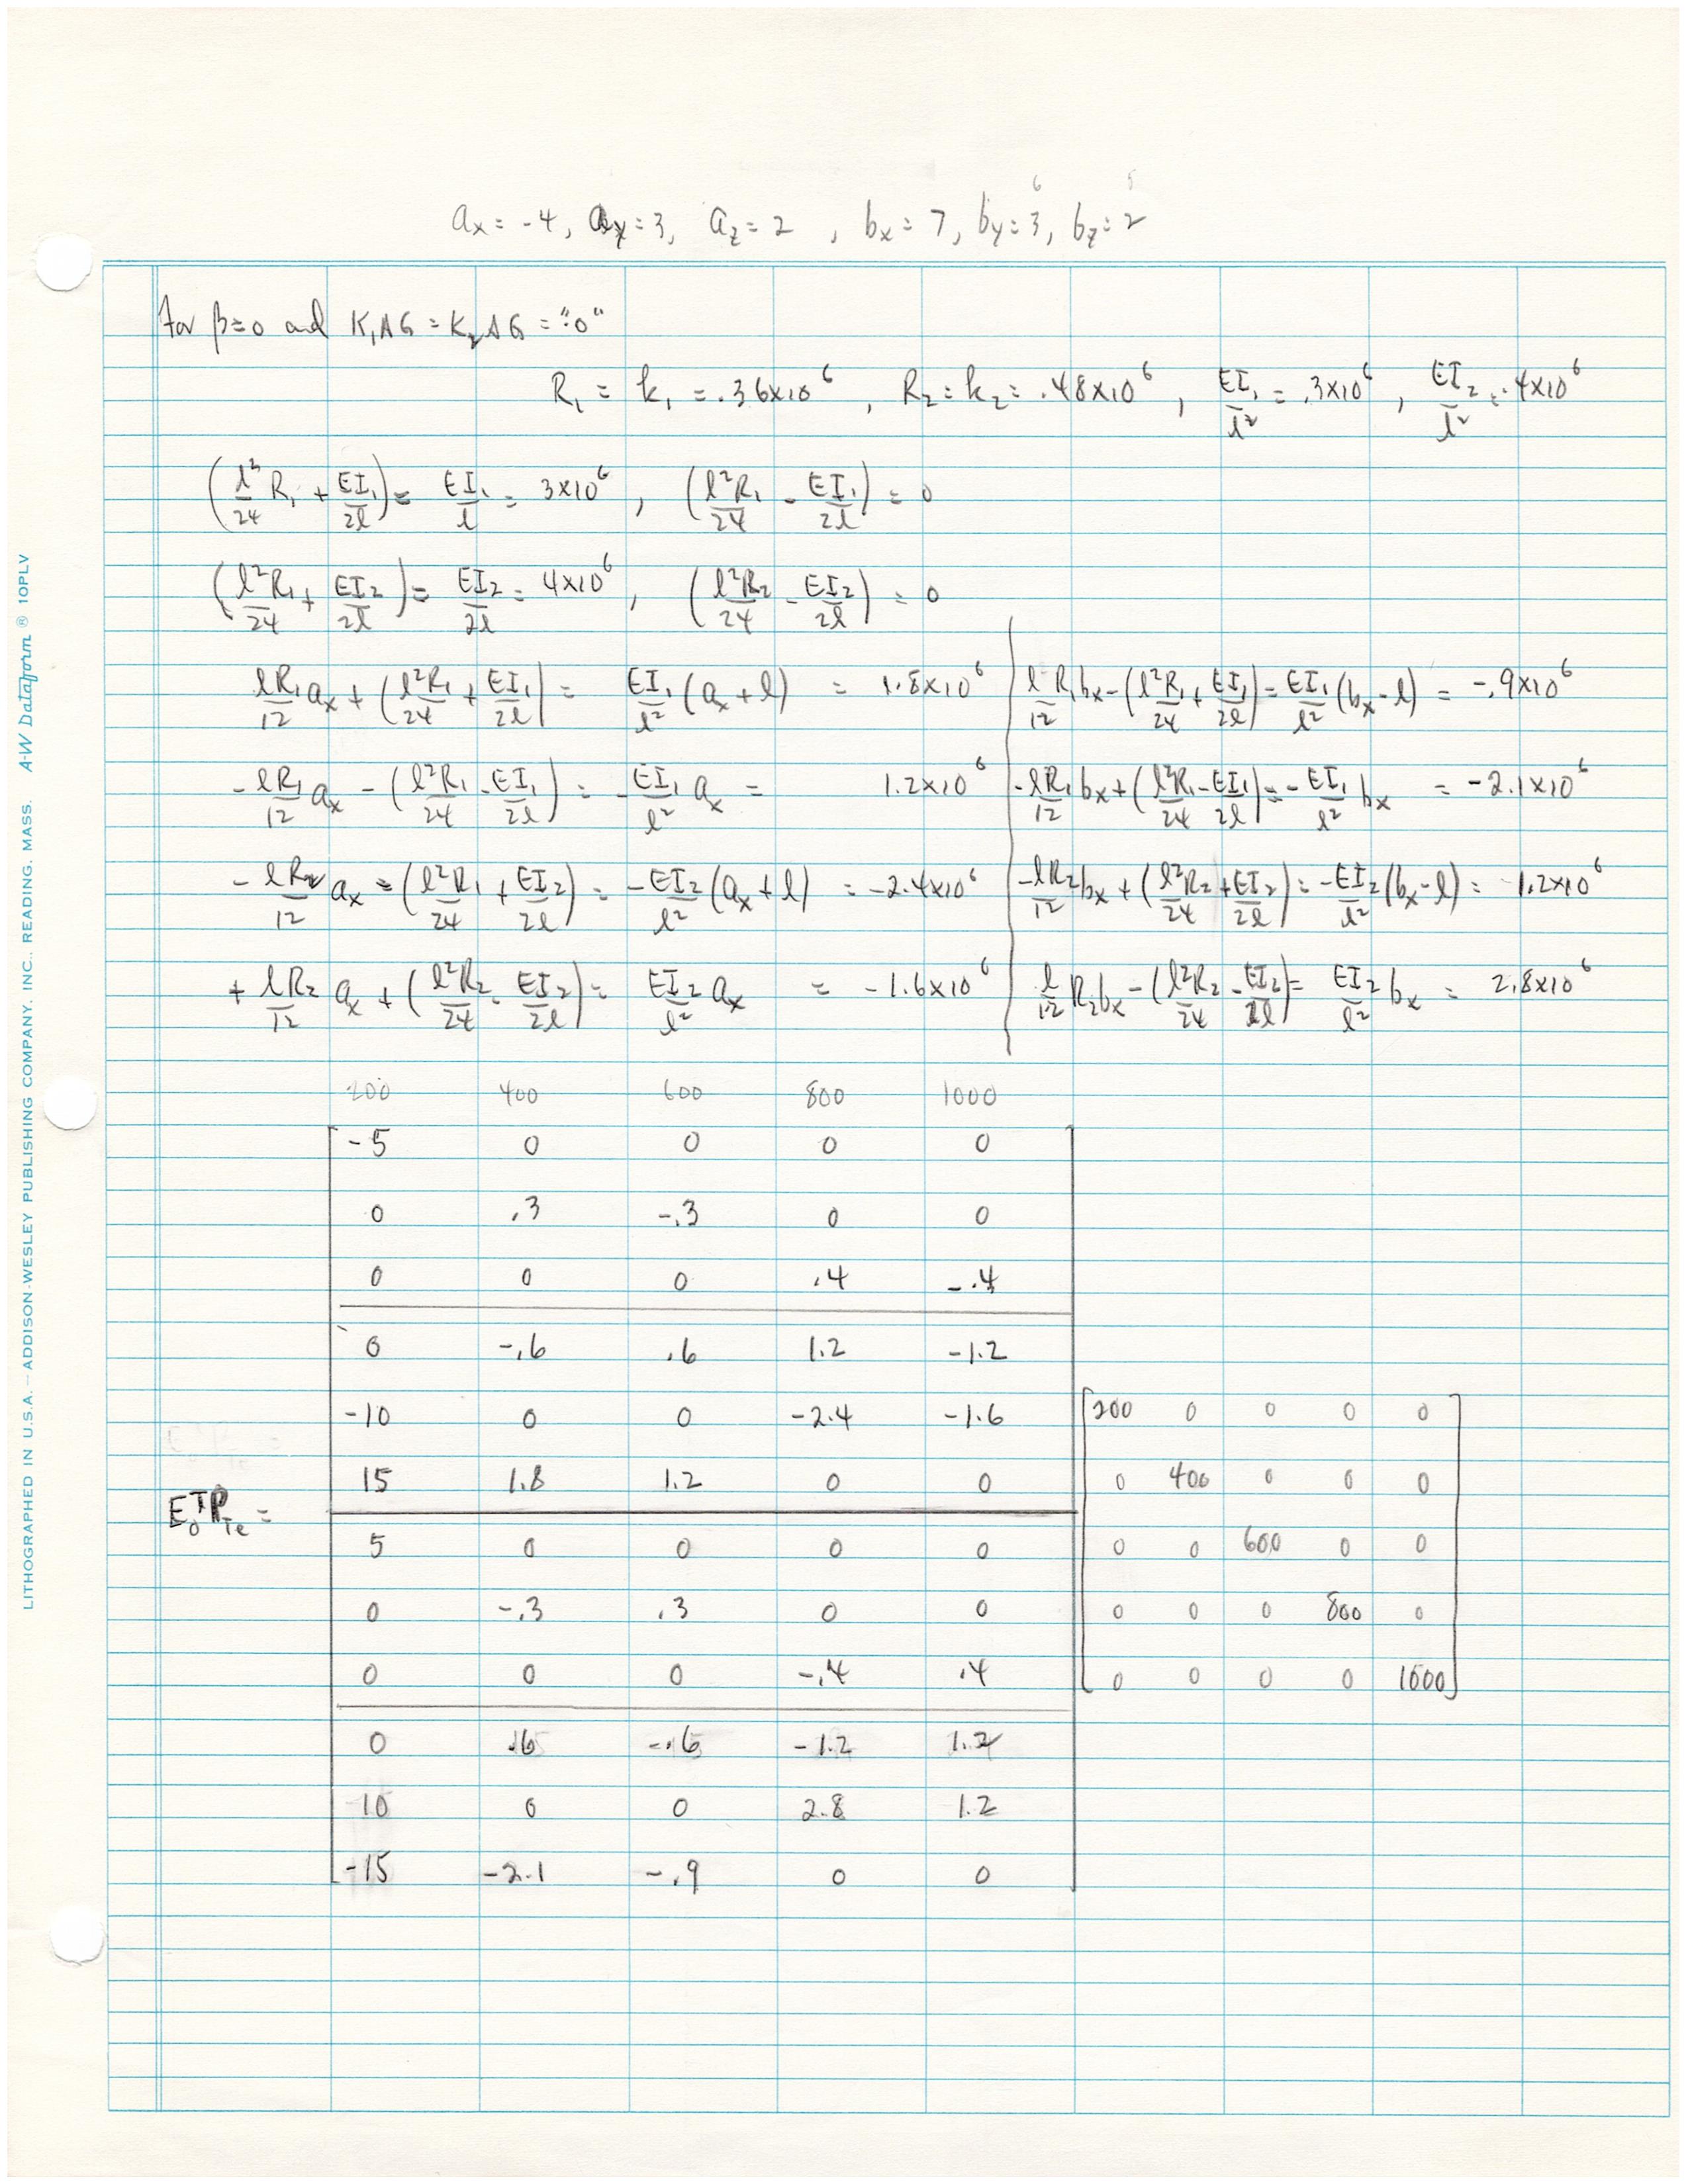 6 5
aₓ = -4, a_y = 3, a_z = 2 , bₓ = 7, b_y = 3, b_z = 2
For β=0 and K₁AG = K₂AG = "0"
R₁ = k₁ = .36x10⁶ , R₂ = k₂ = .48x10⁶ , EI₁/l² = .3x10⁶ , EI₂/l² = .4x10⁶
(l²/24 R₁ + EI₁/2l) = EI₁/l = 3x10⁶ , (l²R₁/24 - EI₁/2l) = 0
(l²R₁/24 + EI₂/2l) = EI₂/2l = 4x10⁶ , (l²R₂/24 - EI₂/2l) = 0
lR₁/12 aₓ + (l²R₁/24 + EI₁/2l) = EI₁/l² (aₓ + l) = 1.8x10⁶ | l/12 R₁bₓ - (l²R₁/24 + EI₁/2l) = EI₁/l² (bₓ - l) = -.9x10⁶
- lR₁/12 aₓ - (l²R₁/24 - EI₁/2l) = - EI₁/l² aₓ = 1.2x10⁶ | - lR₁/12 bₓ + (l²R₁/24 - EI₁/2l) = - EI₁/l² bₓ = -2.1x10⁶
- lR₂/12 aₓ = (l²R₁/24 + EI₂/2l) = - EI₂/l² (aₓ + l) = -2.4x10⁶ | - lR₂/12 bₓ + (l²R₂/24 + EI₂/2l) = - EI₂/l² (bₓ - l) = 1.2x10⁶
+ lR₂/12 aₓ + (l²R₂/24 - EI₂/2l) = EI₂/l² aₓ = -1.6x10⁶ | l/12 R₂bₓ - (l²R₂/24 - EI₂/2l) = EI₂/l² bₓ = 2.8x10⁶
200 400 600 800 1000
-5 0 0 0 0
0 .3 -.3 0 0
0 0 0 .4 -.4
0 -.6 .6 1.2 -1.2
-10 0 0 -2.4 -1.6 200 0 0 0 0
15 1.8 1.2 0 0 0 400 0 0 0
E₀ᵀP_Te =
5 0 0 0 0 0 0 600 0 0
0 -.3 .3 0 0 0 0 0 800 0
0 0 0 -.4 .4 0 0 0 0 1000
0 .6 -.6 -1.2 1.2
10 0 0 2.8 1.2
-15 -2.1 -.9 0 0
LITHOGRAPHED IN U.S.A. — ADDISON-WESLEY PUBLISHING COMPANY, INC., READING, MASS. A-W Dataform ® 10PLV